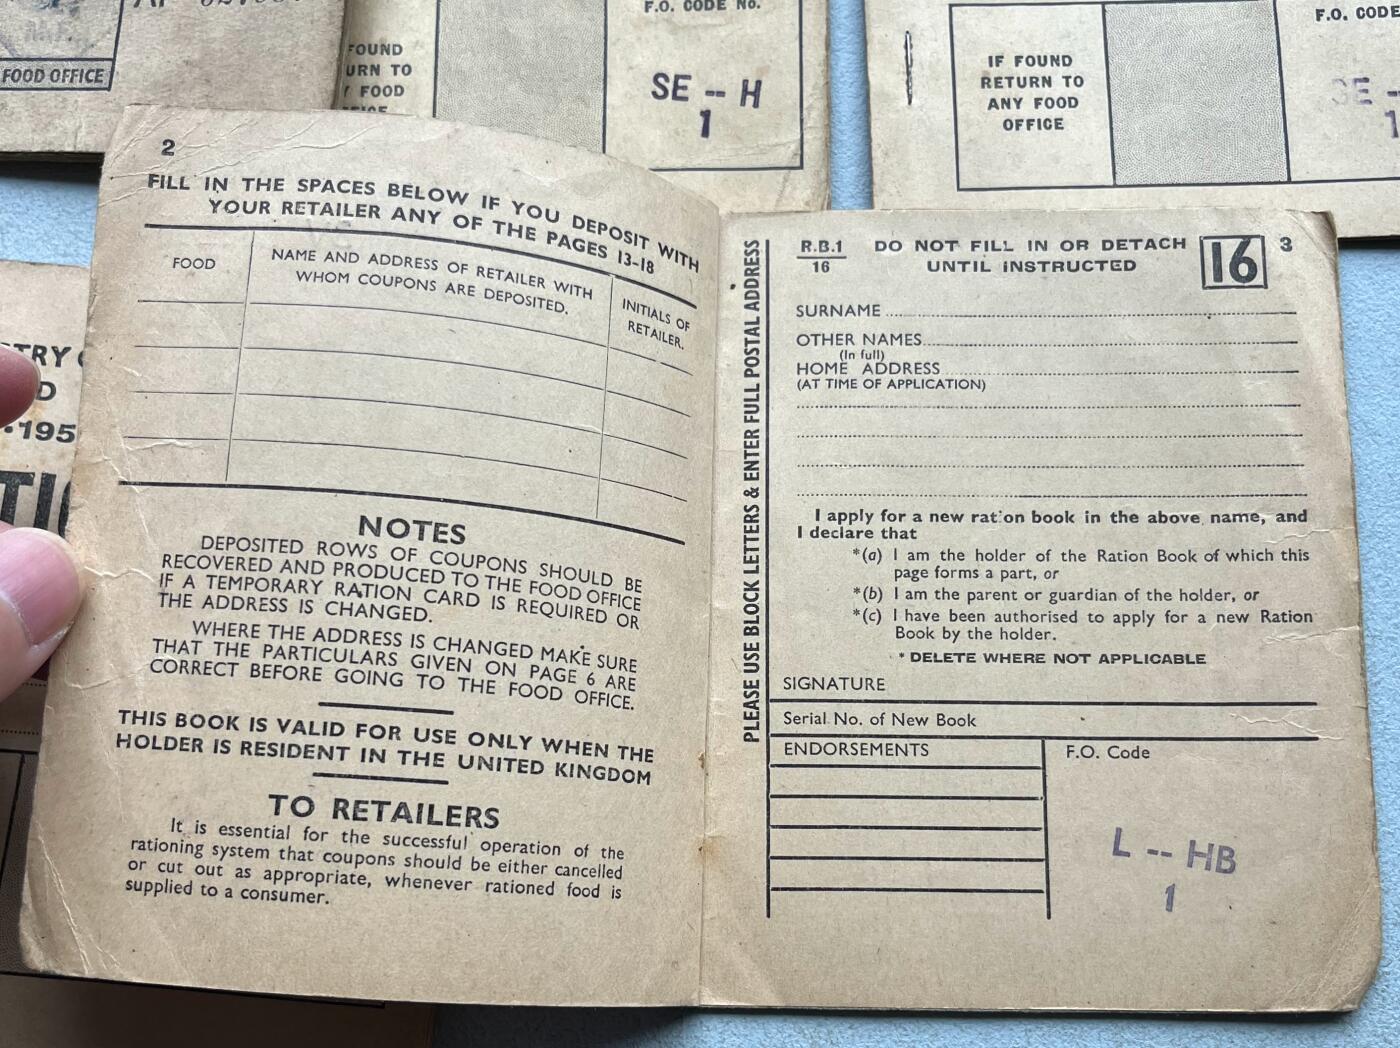 FOOD OFFICE
F.O. CODE No.
FOUND
URN TO
FOOD
SE -- H
1
F.O. CODE
IF FOUND
RETURN TO
ANY FOOD
OFFICE
SE --
1
TRY
D
195
2
FILL IN THE SPACES BELOW IF YOU DEPOSIT WITH
YOUR RETAILER ANY OF THE PAGES 13-18
FOOD
NAME AND ADDRESS OF RETAILER WITH
WHOM COUPONS ARE DEPOSITED.
INITIALS OF
RETAILER.
NOTES
DEPOSITED ROWS OF COUPONS SHOULD BE
RECOVERED AND PRODUCED TO THE FOOD OFFICE
IF A TEMPORARY RATION CARD IS REQUIRED OR
THE ADDRESS IS CHANGED.
WHERE THE ADDRESS IS CHANGED MAKE SURE
THAT THE PARTICULARS GIVEN ON PAGE 6 ARE
CORRECT BEFORE GOING TO THE FOOD OFFICE.
THIS BOOK IS VALID FOR USE ONLY WHEN THE
HOLDER IS RESIDENT IN THE UNITED KINGDOM
TO RETAILERS
It is essential for the successful operation of the
rationing system that coupons should be either cancelled
or cut out as appropriate, whenever rationed food is
supplied to a consumer.
PLEASE USE BLOCK LETTERS & ENTER FULL POSTAL ADDRESS
R.B.1
16
DO NOT FILL IN OR DETACH
UNTIL INSTRUCTED
16
3
SURNAME
OTHER NAMES
(In full)
HOME ADDRESS
(AT TIME OF APPLICATION)
I apply for a new ration book in the above name, and
I declare that
*(a) I am the holder of the Ration Book of which this
page forms a part, or
*(b) I am the parent or guardian of the holder, or
*(c) I have been authorised to apply for a new Ration
Book by the holder.
* DELETE WHERE NOT APPLICABLE
SIGNATURE
Serial No. of New Book
ENDORSEMENTS
F.O. Code
L -- HB
1